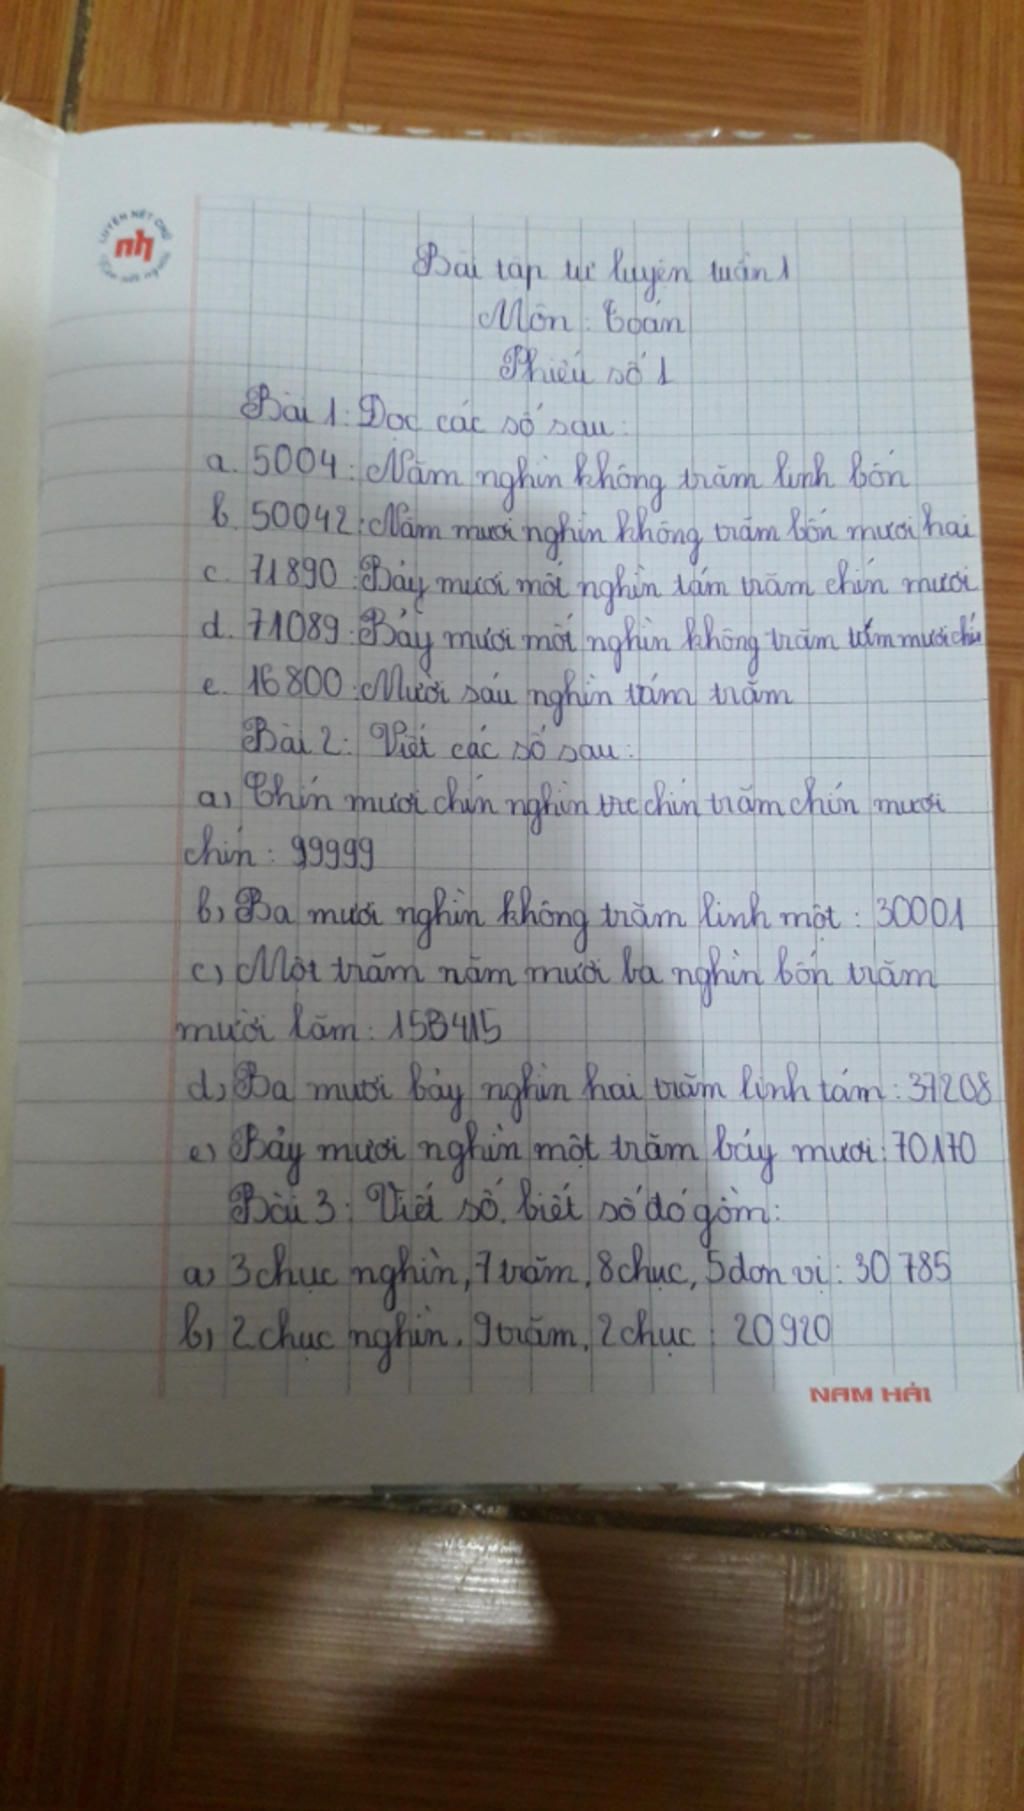 LUYỆN NÉT CHỮ
nh
Bài tập tự luyện tuần 1
Môn: Toán
Phiếu số 1
Bài 1: Đọc các số sau:
a. 5004: Năm nghìn không trăm linh bốn
b. 50042: Năm mươi nghìn không trăm bốn mươi hai
c. 71890: Bảy mươi mốt nghìn tám trăm chín mươi
d. 71089: Bảy mươi mốt nghìn không trăm tám mươi chín
e. 16800: Mười sáu nghìn tám trăm
Bài 2: Viết các số sau:
a) Chín mươi chín nghìn chín trăm chín mươi
chín: 99999
b) Ba mươi nghìn không trăm linh một: 30001
c) Một trăm năm mươi ba nghìn bốn trăm
mười lăm: 153415
d) Ba mươi bảy nghìn hai trăm linh tám: 37208
e) Bảy mươi nghìn một trăm bảy mươi: 70170
Bài 3: Viết số, biết số đó gồm:
a) 3 chục nghìn, 7 trăm, 8 chục, 5 đơn vị: 30 785
b) 2 chục nghìn, 9 trăm, 2 chục: 20 920
NAM HẢI